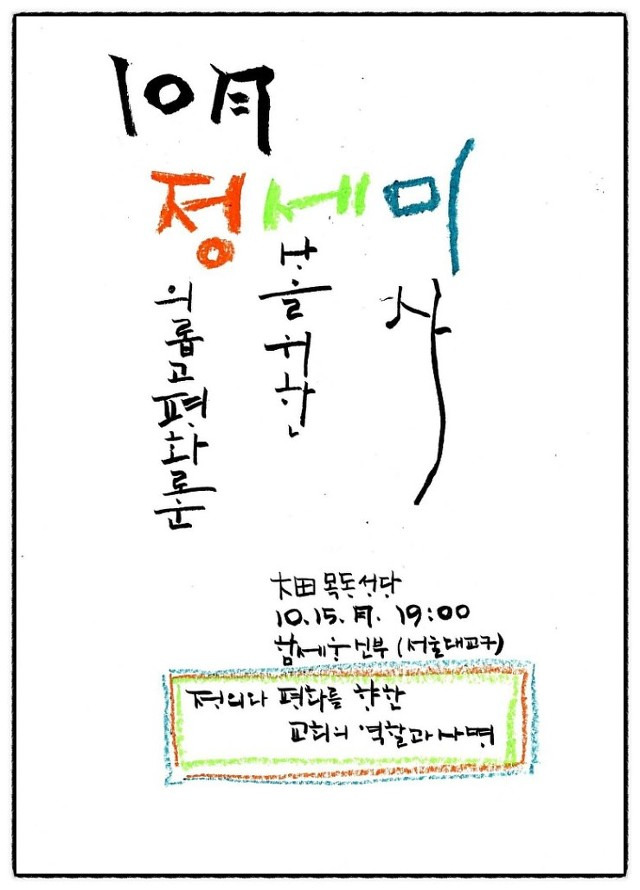 10月
정세미
의롭고평화로운
상을위한
사
大田 목동성당
10.15.月. 19:00
함세웅 신부 (서울대교구)
정의와 평화를 향한
교회의 역할과 사명